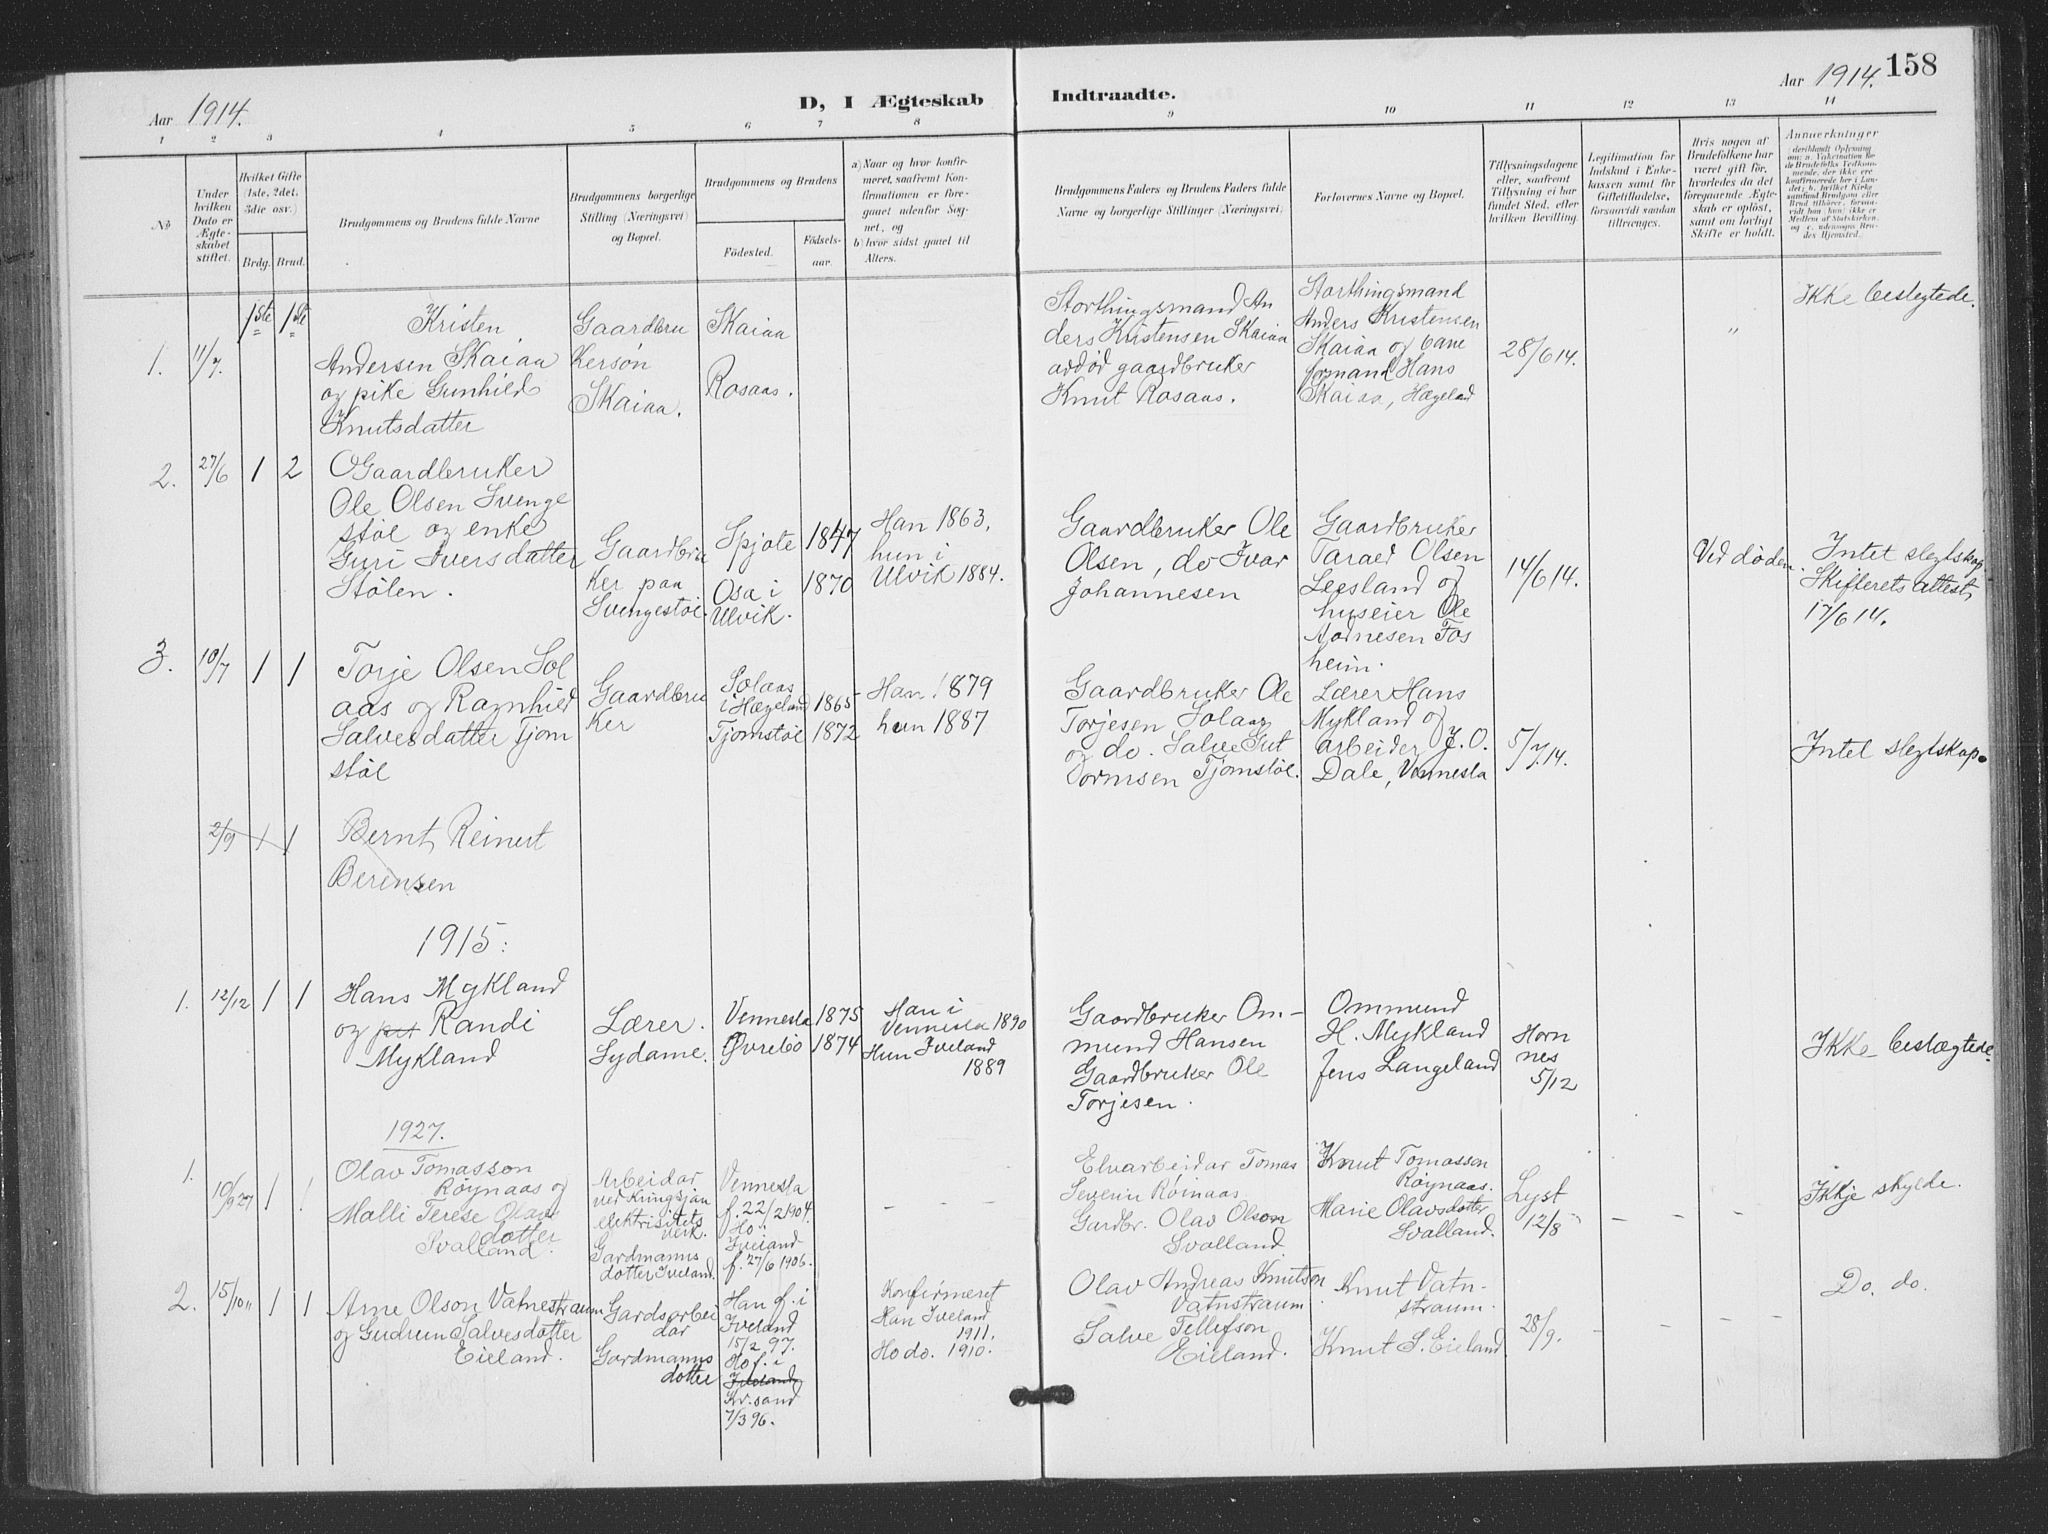 158
Aar 1914.
D, I Ægteskab Indtraadte.
Aar 1914.
1 2 3 4 5 6 7 8 9 10 11 12 13 14
No
Under
hvilken
Dato er
Ægte-
skabet
stiftet.
Hvilket Gifte
(1ste, 2det,
3die osv.)
Brdg. Brud.
Brudgommens og Brudens fulde Navne
Brudgommens borgerlige
Stilling (Næringsvei)
og Bopæl.
Brudgommens og Brudens
Fødested.
Fødsels-
aar.
a) Naar og hvor konfir-
meret, saafremt Kon-
firmationen er fore-
gaaet udenfor Sog-
net, og
b) hvor sidst gaaet til
Alters.
Brudgommens Faders og Brudens Faders fulde
Navne og borgerlige Stillinger (Næringsvei)
Forlovernes Navne og Bopæl.
Tillysningsdagene
eller, saafremt
Tillysning ei har
fundet Sted, efter
hvilken Bevilling.
Legitimation for
Indskud i Enke-
kassen samt for
Giftetilladelse,
forsaavidt saadan
tiltrænges.
Hvis nogen af
Brudefolkene har
været gift før,
hvorledes da det
foregaaende Ægte-
skab er opløst,
samt om lovligt
Skifte er holdt.
Anmerkninger
deriblandt Oplysning
om: a. Vakcination for
de Brudefolks Vedkom-
mende, der ikke ere
konfirmerede her i Lan-
det; b. hvilket Kirke
samfund Brudgom eller
Brud tilhører, forsaa-
vidt han (hun) ikke er
Medlem af Statskirken,
og c. udensogns Bru-
des Hjemsted.
1. 11/7. 1ste 1ste
Kristen
Andersen Skaiaa
og pike Gunhild
Knutsdatter
Gaardbru
kersøn
Skaiaa.
Skaiaa
Rosaas.
Storthingsmand An
ders Kristensen Skaiaa
avdød gaardbruker
Knut Rosaas.
Storthingsmand
Anders Kristensen
Skaiaa og bane
formand Hans
Skaiaa, Hægeland
28/6 14.
"
Ikke beslegtede.
2. 27/6 1 2
Gaardbruker
Ole Olsen Svenge
støl og enke
Guri Iversdatter
Stølen.
Gaardbru
ker paa
Svengestøl.
Spjote 1847
Osa i 1870
Ulvik.
Han 1863.
hun i
Ulvik 1884.
Gaardbruker Ole
Olsen, do Ivar
Johannesen
Gaardbruker
Tarald Olsen
Leesland og
huseier Ole
Aadnesen Fos
heim.
14/6 14.
Ved døden.
Intet slegtskap.
Skifterets attest
17/6 14.
3. 10/7 1 1
Torje Olsen Sol
aas og Ragnhild
Salvesdatter Tjom
støl
Gaardbru
ker
Solaas
i Hægeland 1865
Tjomstøl 1872
Han 1879
hun 1887
Gaardbruker Ole
Torjesen Solaas
og do. Salve Gut
tormsen Tjomstøl.
Lærer Hans
Mykland og
arbeider J. O.
Dale, Vennesla
5/7. 14.
Intet slegtskap.
2/9 1 1
Bernt Reinert
Berensen
1915:
1. 12/12 1 1
Hans Mykland
og Randi
Mykland
Lærer.
Sydame.
Vennesla 1875
Øvrebø 1874
Han i
Vennesla 1890
Hun Iveland
1889
Gaardbruker Om-
mund Hansen
Gaardbruker Ole
Torjesen.
Ommund
H. Mykland
Jens Langeland
Horn
nes
5/12
Ikke beslægtede.
1927.
1. 10/9 27 1 1
Olav Tomasson
Røynaas og
Malli Terese Olavs
dotter
Svalland.
Arbeidar
ved Kringsjaa
elektrisitets
verk.
Gardmanns
dotter Iveland.
Vennesla
f. 22/2 1904.
Ho
Iveland
f. 27/6 1906.
- -
Elvarbeidar Tomas
Severin Røinaas
Gardbr. Olav Olson
Svalland.
Knut Tomasson
Røynaas.
Marie Olavsdotter
Svalland.
Lyst
12/8
- - -
Ikkje skylde.
2. 15/10 " 1 1
Arne Olson Vatnestraum
og Gudrun Salvesdotter
Eieland.
Gardsarbei
dar
Gardmanns
dotter
Han f. i
Iveland
15/2 97.
Ho f. i
Iveland
Kr.sand
7/3 96.
Konfirmeret
Han Iveland
1911.
Ho do. 1910.
Olav Andreas Knutson
Vatnstraum
Salve Tellefson
Eieland.
Knut Vatn-
straum.
Knut S. Eieland.
28/9.
- - - -
Do. do.